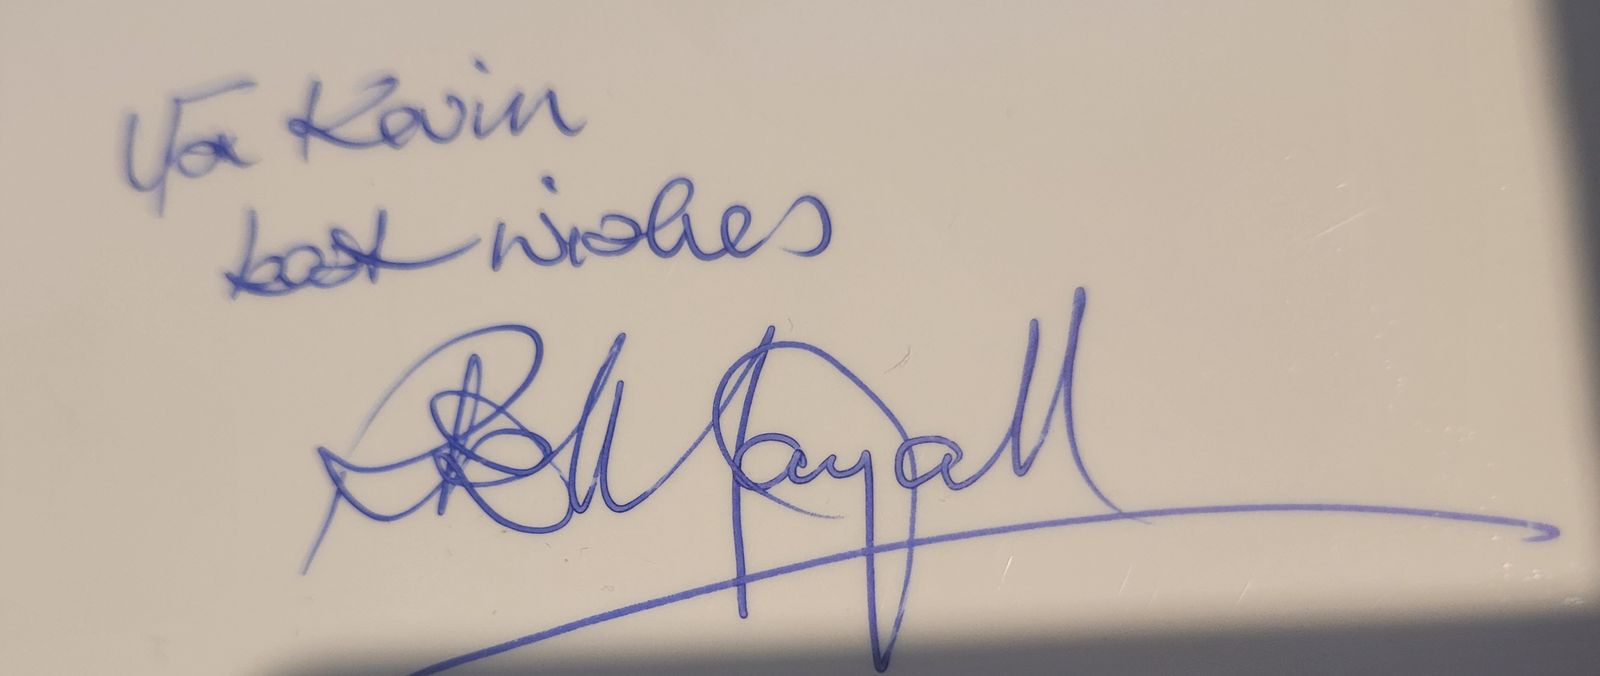 For Kevin
best wishes
Bill Mayall